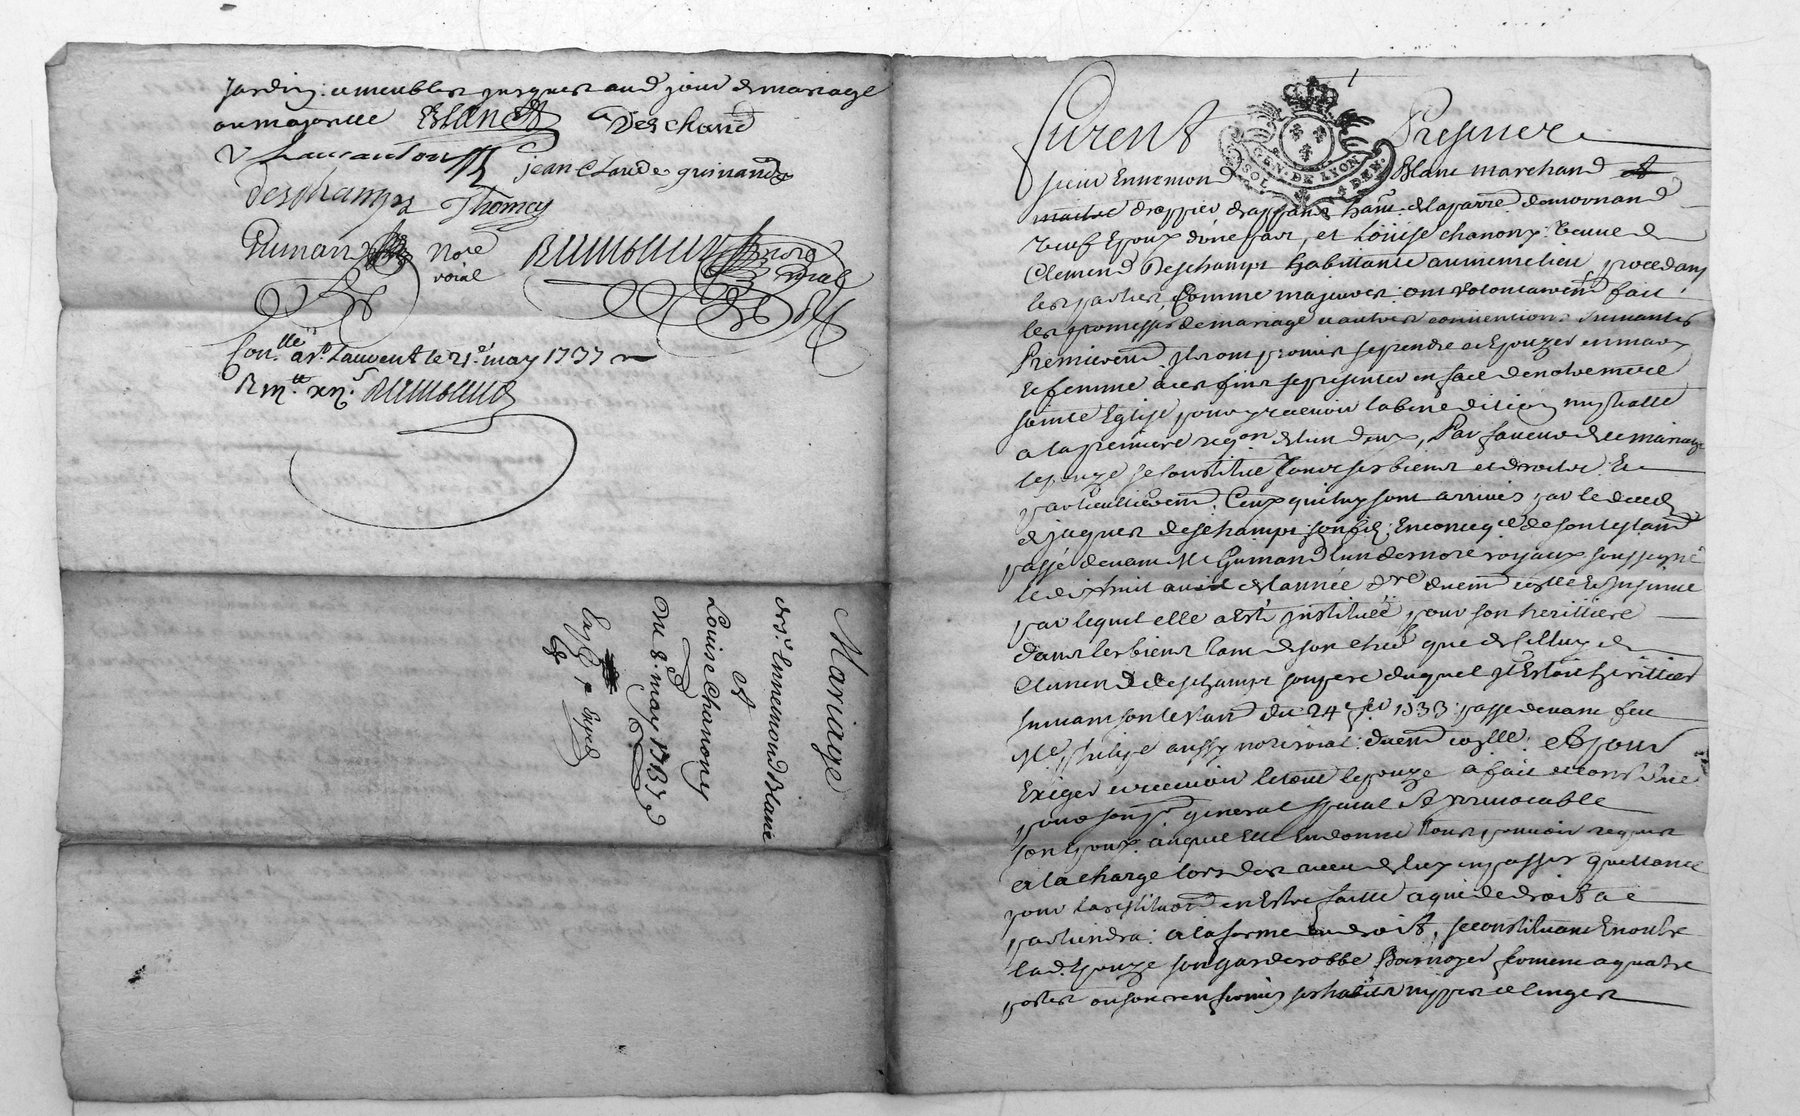 jardin: ameubles jusques aud jour de mariage
ou majorité Blanc Deschand
Laurauson jean Claude guinand
Deschamps Thomey
Guinand Nore roial Raimond nore roial
Con.lle a st Laurent le 21e may 1737
R
Mariage
de sr. Ennemond Blanc
et
Louise Chanony
Du 8. may 1737
Furent Presents
GEN. DE LYON
SOL 4 DEN.
sieur Ennemond Blanc marchand et
maitre drappier drappant de la parre. de mornand
veuf et Louise chanony: veuve de
Clemend Deschamps habittante au meme lieu procedans
les parties comme majeures: ont volontairemt fait
les promesses de mariage et autres conventions suivantes
Premieremt ils ont promis se prendre et Epouzer en mary
et femme a ces fins se presenter en face de notre mere
sainte Eglise pour y recevoir la benediction nuptialle
a la premiere reqon de lun deux, Par faveur de ce mariage
lepouze se constitue tous ses biens et droits Et
particulieremt. Ceux qui luy sont arrivés par le deced
de jaques deschamps son fils; En conseqce de son testamt
passé devant Me Guinand lun des nore royaux soussigné
le dixhuit de lannée dre duemt collé et insinué
par lequel elle a Esté instituée pour son heritiere
dans les biens tant de son chef que de Celluy de
Clemend deschamps son pere duquel il Estoit heritier
suivant son testamt du 24e 1733: passé devant feu
Me philipe aussy nore roial: duemt collé: et pour
Exiger et recevoir le tout lepouze a fait et constitué
pour son pr. general special et irrevocable
son Epoux auquel Elle En donne tous pouvoir requis
a la charge lors des receu de luy en passer quittance
pour la restitution en Estre faitte a qui de droit a
partiendra: a la forme du droit, se constituant En outre
lad. Epouze son garderobbe Bois noyer fermant a quatre
portes ou son renfermés ses habits nippes et linges